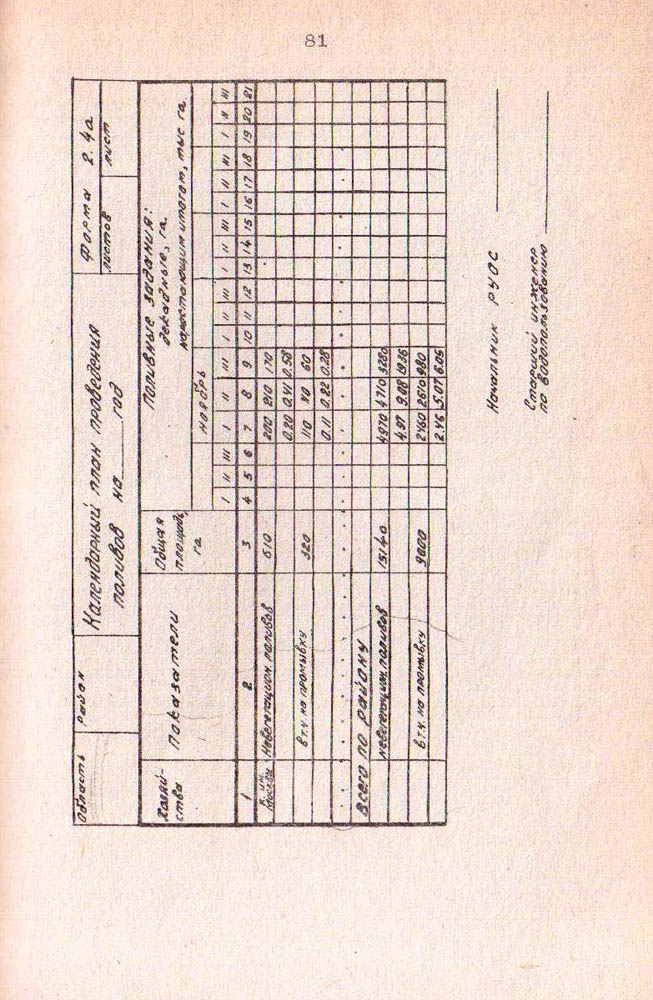 81
Область
Район
Календарный план проведения
поливов на ____ год
Форма 2.4а
листов
лист
Хозяй-
ства
Показатели
Общая
площадь,
га
Поливные задания:
декадные, га
нарастающим итогом, тыс га
ноябрь
I II III I II III I II III I II III I II III I II III
1 2 3 4 5 6 7 8 9 10 11 12 13 14 15 16 17 18 19 20 21
к. им.
Москвы Невегетацион поливов 510 200 210 170
0.20 0.41 0.58
в т.ч на промывку 320 110 110 60
0.11 0.22 0.28
Всего по району
невегетацион поливов 15140 4970 4710 3280
4.97 9.68
в т.ч на промывку 9600 2460 2610 980
2.46 5.07 6.05
Начальник РУОС
Старший инженер
по водопользованию